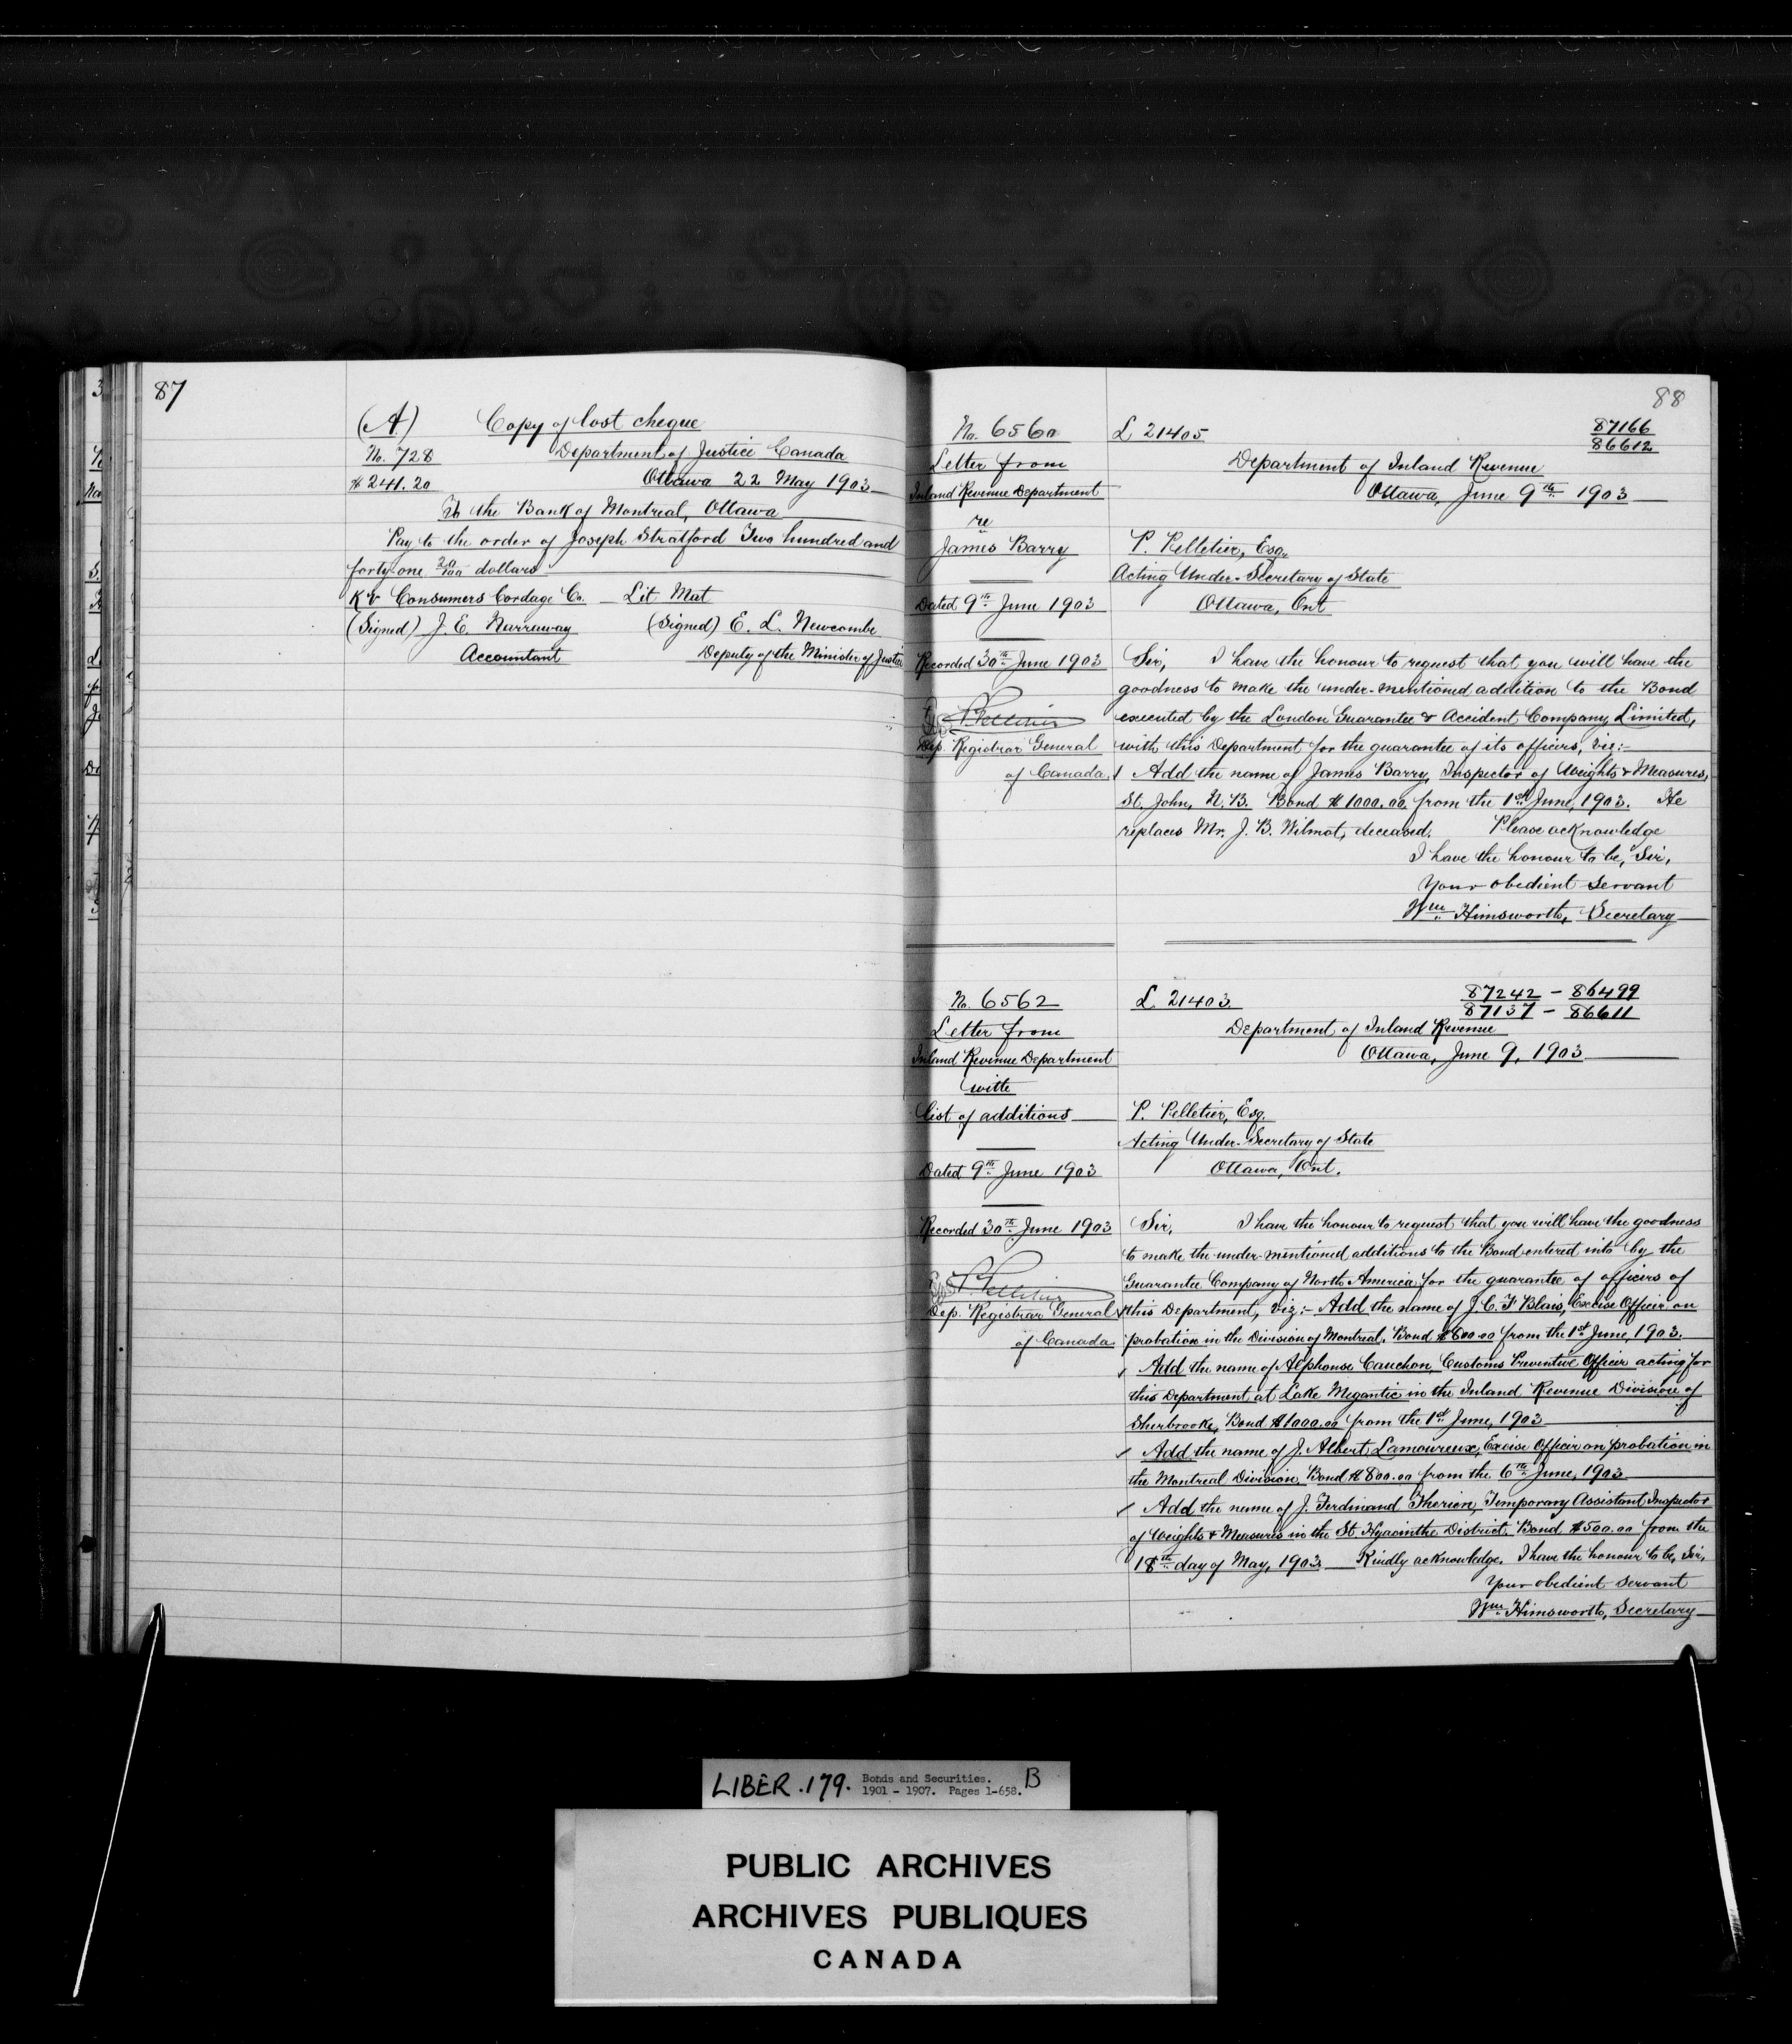 87
(A) Copy of lost cheque
No. 728 Department of Justice Canada
$241.20 Ottawa 22 May 1903
To the Bank of Montreal, Ottawa
Pay to the order of Joseph Stratford Two hundred and
forty-one 20/100 dollars
K v Consumers Cordage Co. Lit Mat
(Signed) J. E. Narraway (Signed) E. L. Newcombe
Accountant Deputy of the Minister of Justice
88
No. 6560
Letter from
Inland Revenue Department
re
James Barry
Dated 9th June 1903
Recorded 30th June 1903
P. Pelletier
Dep. Registrar General
of Canada
L 21405
87166
86612
Department of Inland Revenue
Ottawa, June 9th 1903
P. Pelletier, Esq.
Acting Under-Secretary of State
Ottawa, Ont
Sir, I have the honour to request that you will have the
goodness to make the under-mentioned addition to the Bond
executed by the London Guarantee & Accident Company, Limited,
with this Department for the guarantee of its officers, viz:-
Add the name of James Barry, Inspector of Weights & Measures,
St. John, N.B. Bond $1000.00 from the 1st June, 1903. He
replaces Mr. J. B. Wilmot, deceased. Please acknowledge
I have the honour to be, Sir,
Your obedient servant
Wm Himsworth, Secretary
No. 6562
Letter from
Inland Revenue Department
with
List of additions
Dated 9th June 1903
Recorded 30th June 1903
P. Pelletier
Dep. Registrar General
of Canada
L 21403
87242 - 86499
87137 - 86611
Department of Inland Revenue
Ottawa, June 9, 1903
P. Pelletier, Esq.
Acting Under-Secretary of State
Ottawa, Ont.
Sir, I have the honour to request that you will have the goodness
to make the under-mentioned additions to the Bond entered into by the
Guarantee Company of North America for the guarantee of officers of
this Department, viz:- Add the name of J. C. F. Blais, Excise Officer on
probation in the Division of Montreal. Bond $800.00 from the 1st June, 1903.
Add the name of Alphonse Cauchon, Customs Preventive Officer acting for
this Department at Lake Megantic in the Inland Revenue Division of
Sherbrooke, Bond $1000.00 from the 1st June, 1903
Add the name of J. Albert Lamoureux, Excise Officer on probation in
the Montreal Division, Bond $800.00 from the 6th June, 1903
Add the name of J. Ferdinand Therien, Temporary Assistant Inspector
of Weights & Measures in the St Hyacinthe District. Bond $500.00 from the
18th day of May, 1903 Kindly acknowledge. I have the honour to be, Sir,
Your obedient servant
Wm Himsworth, Secretary
LIBER.179. Bonds and Securities. B
1901 - 1907. Pages 1-658.
PUBLIC ARCHIVES
ARCHIVES PUBLIQUES
CANADA